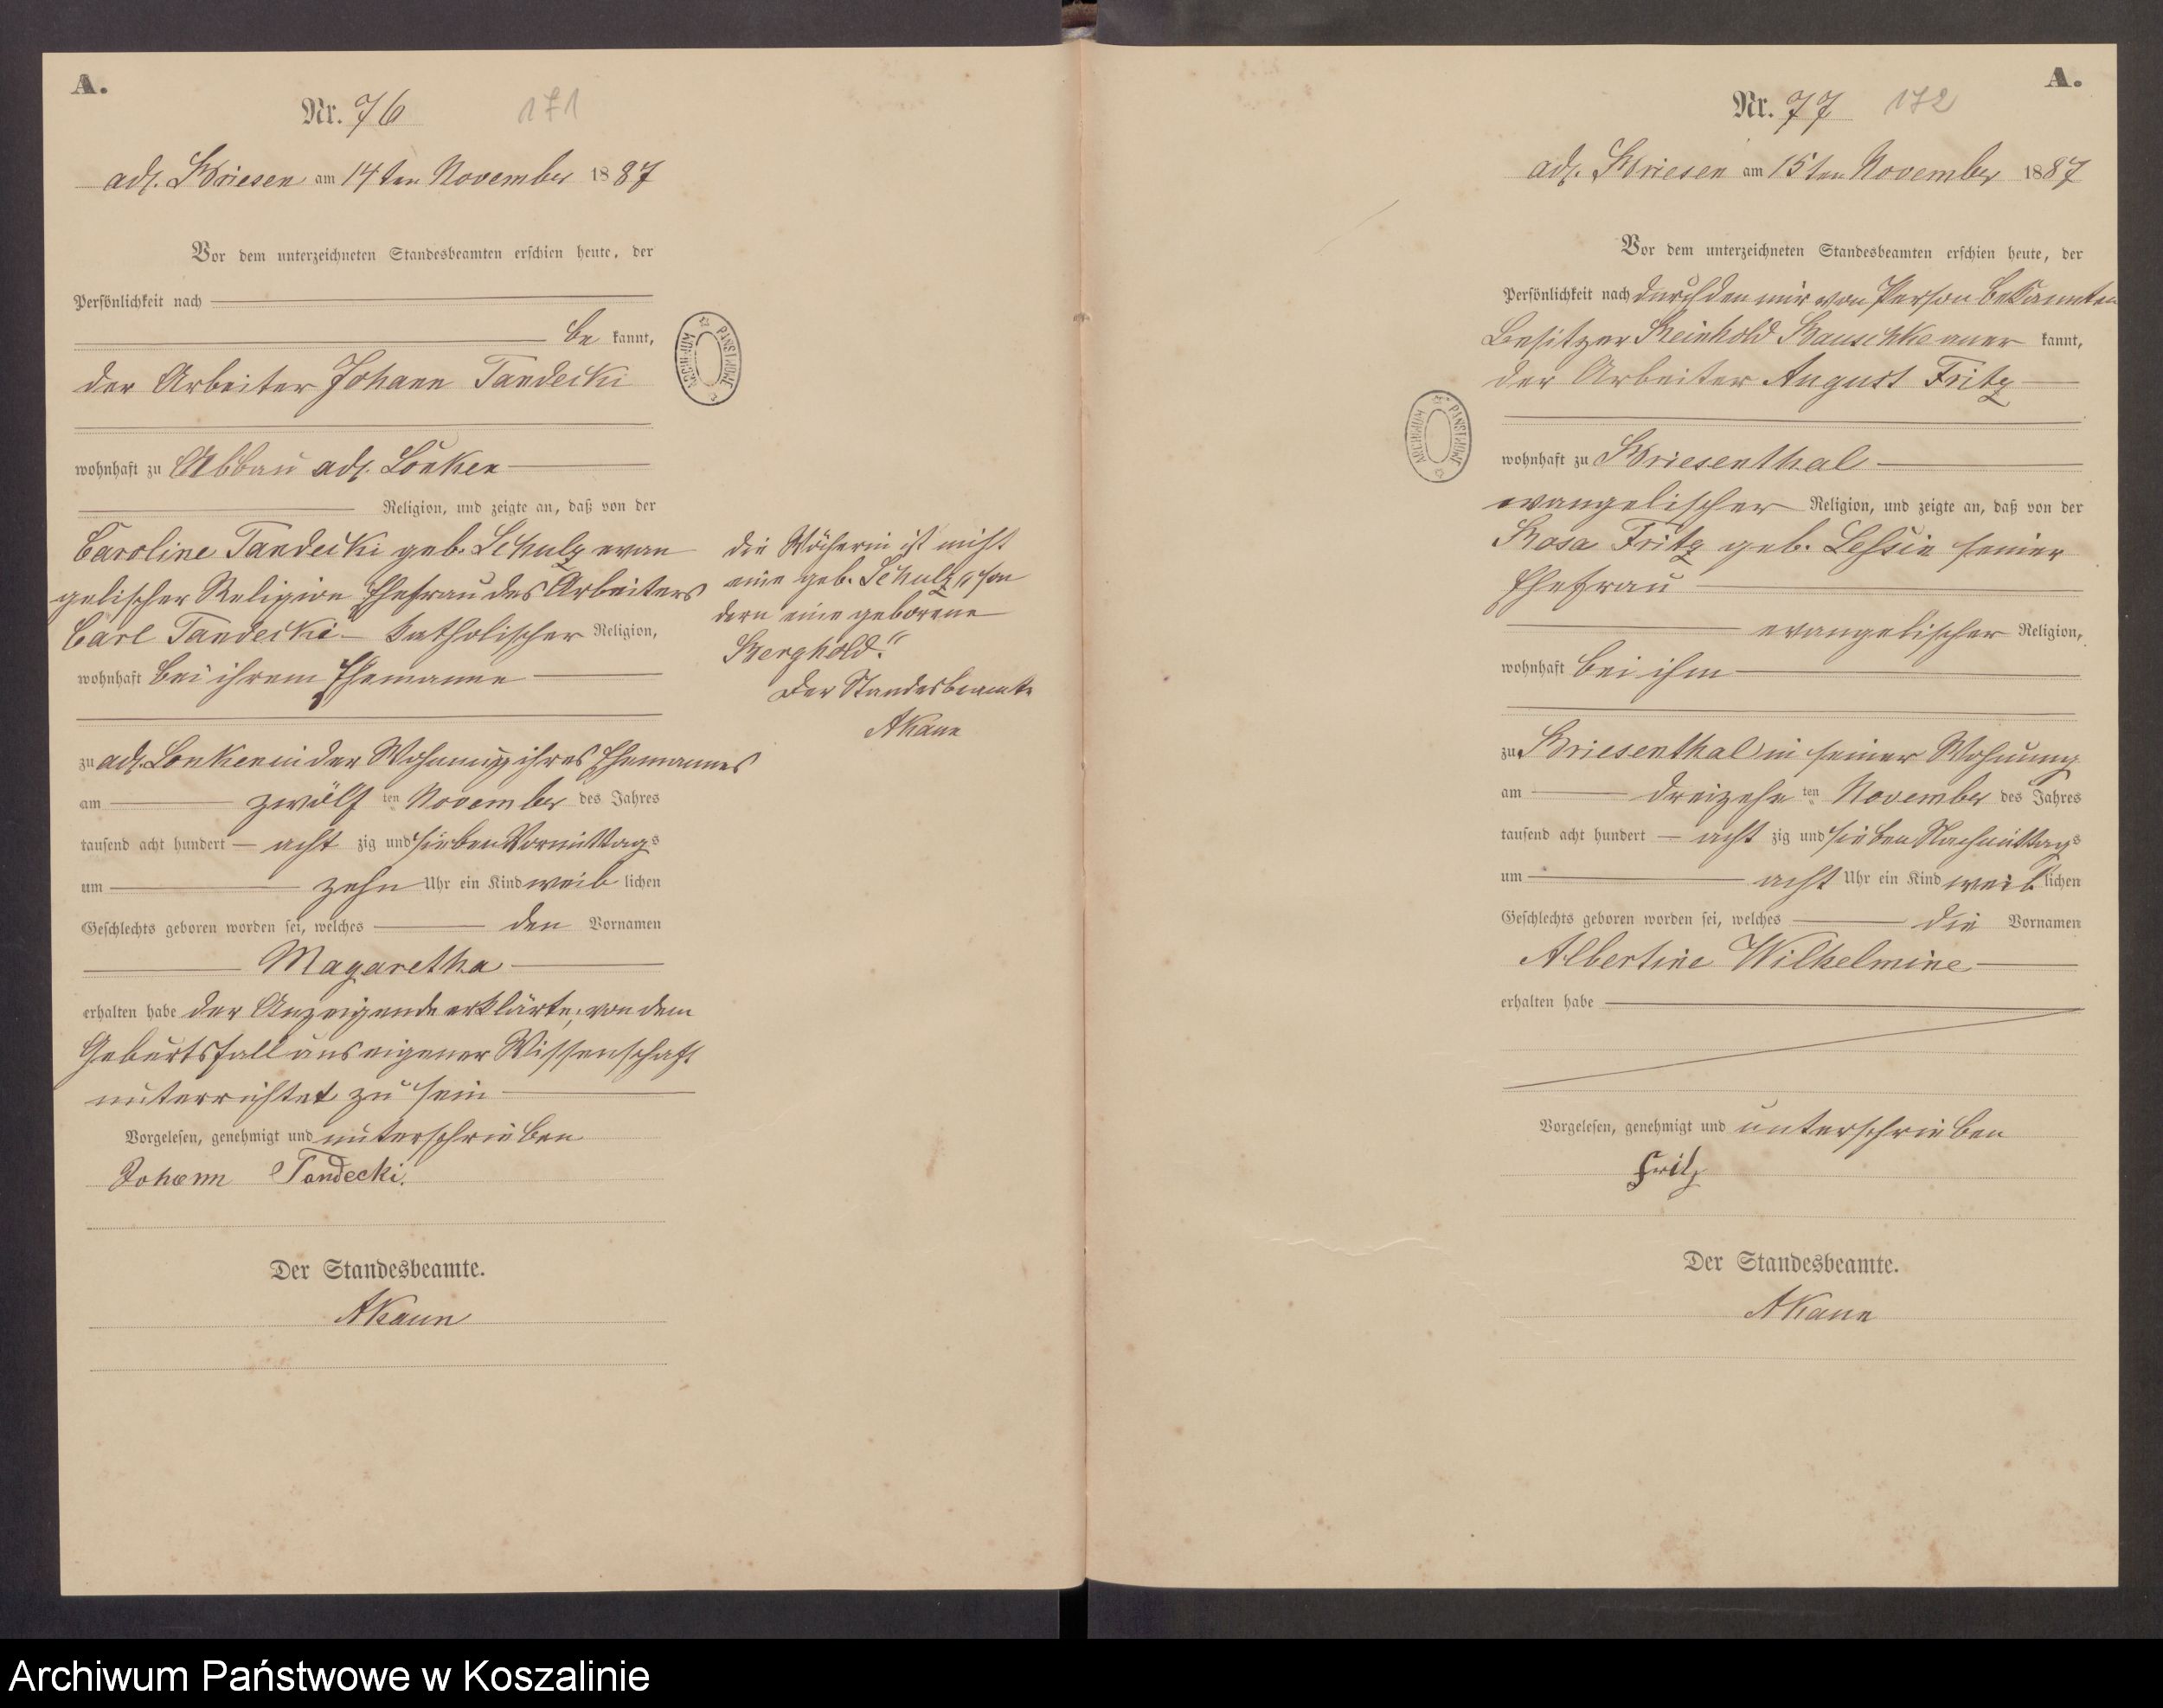 A.
Nr. 76 171
adl. Briesen am 14ten November 1887
Vor dem unterzeichneten Standesbeamten erschien heute, der
Persönlichkeit nach
be kannt,
der Arbeiter Johann Tandecki
wohnhaft zu Abbau adl. Lonken
Religion, und zeigte an, daß von der
Caroline Tandecki geb. Schulz evan
gelischer Religion Ehefrau des Arbeiters
Carl Tandecki katholischer Religion,
wohnhaft bei ihrem Ehemanne
zu adl. Lonken in der Wohnung ihres Ehemannes
am zwölf ten November des Jahres
tausend acht hundert acht zig und sieben Vormittags
um zehn Uhr ein Kind weib lichen
Geschlechts geboren worden sei, welches den Vornamen
Magaretha
erhalten habe der Anzeigende erklärte, von dem
Geburtsfall aus eigener Wissenschaft
unterrichtet zu sein
Vorgelesen, genehmigt und unterschrieben
Johann Tandecki.
Der Standesbeamte.
AKaun
die Wöcherin ist nicht
eine geb. Schulz, son
dern eine geborene
Berghold."
Der Standesbeamte
AKaun
ARCHIWUM PAŃSTWOWE
A.
Nr. 77 172
adl. Briesen am 15ten November 1887
Vor dem unterzeichneten Standesbeamten erschien heute, der
Persönlichkeit nach durch den mir von Person bekannten
Besitzer Reinhold aner kannt,
der Arbeiter August Fritz
wohnhaft zu Briesenthal
evangelischer Religion, und zeigte an, daß von der
Rosa Fritz geb. seiner
Ehefrau
evangelischer Religion,
wohnhaft bei ihm
zu Briesenthal in seiner Wohnung
am dreizehn ten November des Jahres
tausend acht hundert acht zig und sieben Nachmittags
um acht Uhr ein Kind weib lichen
Geschlechts geboren worden sei, welches die Vornamen
Albertine Wilhelmine
erhalten habe
Vorgelesen, genehmigt und unterschrieben
Fritz
Der Standesbeamte.
AKaun
ARCHIWUM PAŃSTWOWE
Archiwum Państwowe w Koszalinie